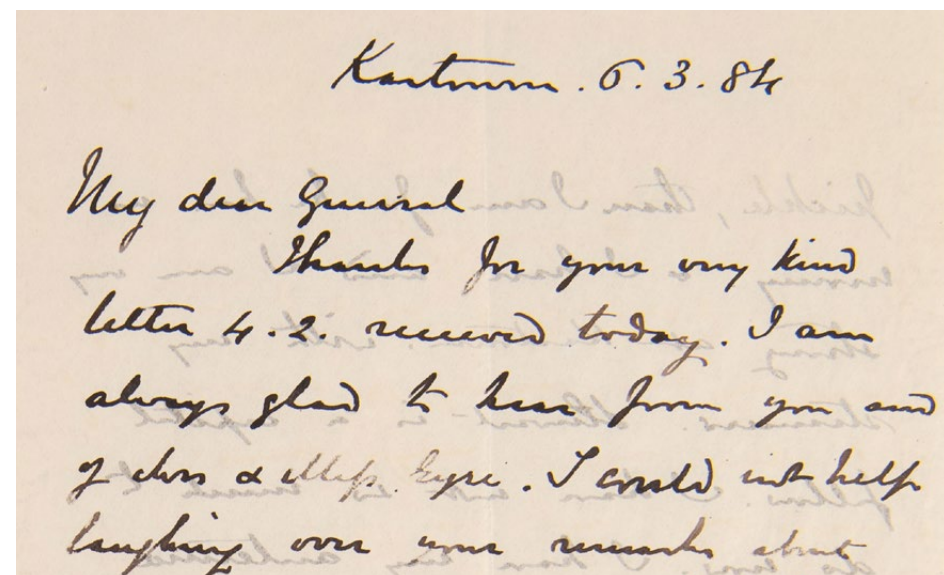 Kartoum . 6 . 3 . 84
My dear General
Thanks for your very kind
letter 4 . 2 . received today . I am
always glad to hear from you and
of Mrs & Miss Eyre . I could not help
laughing over your remarks about